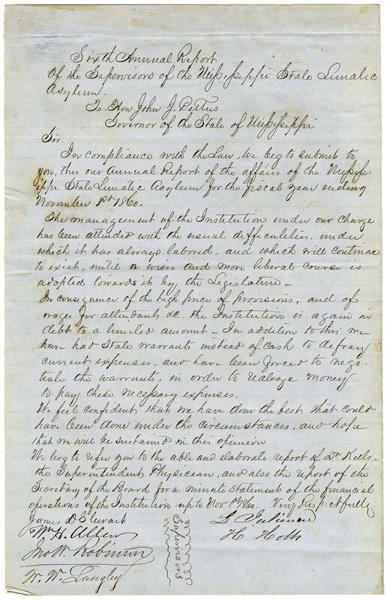 Sixth Annual Report
Of the Supervisors of the Mississippi State Lunatic
Asylum.
To Hon John J. Pettus
Governor of the State of Mississippi
Sir
In compliance with the Law, We beg to submit to
you, this our Annual Report of the affairs of the Missis-
sippi State Lunatic Asylum for the fiscal year ending
November 1st 1860.
The management of the Institution under our charge
has been attended with the usual difficulties, under
which it has always labored, and which will continue
to exist, until a wiser and more liberal course is
adopted towards it by the Legislature—
In consequence of the high price of provisions, and of
wages for attendants &c. the Institution is again in
debt to a limited amount— In addition to this we
have had State warrants instead of Cash to defray
current expenses, and have been forced to nego-
tiate the warrants, in order to realize money
to pay these necessary expenses.
We feel confident, that we have done the best that could
have been done under the circumstances, and hope
that we will be sustained in this opinion
We beg to refer you to the able and elaborate report of Dr Kells
the Superintendent, Physician, and also the report of the
Secretary of the Board for a minute statement of the financial
operations of the Institution up to Nov 1st 1860. Very Respectfully
James D Stewart
L Julienne
Wm H. Allen
H. Hilzheim
Jno W. Robinson
W. W. Langley
Supervisors